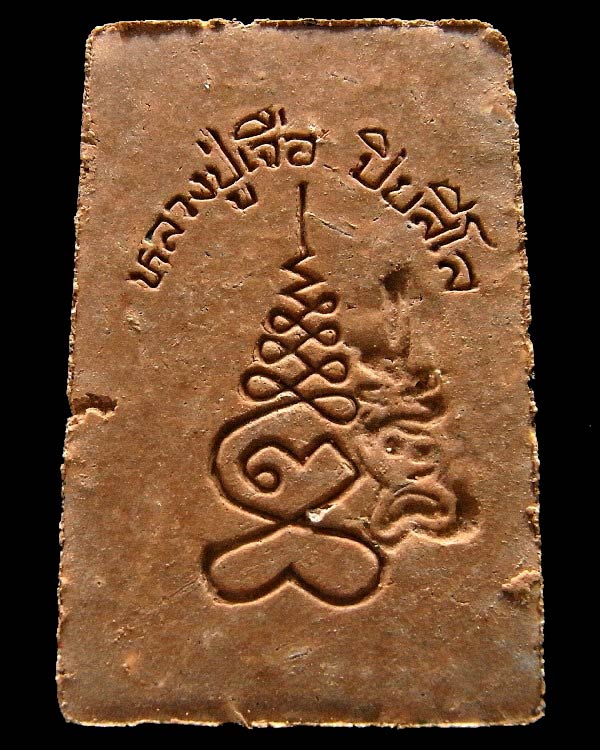 หลวงปู่เจือ ปิยสีโล